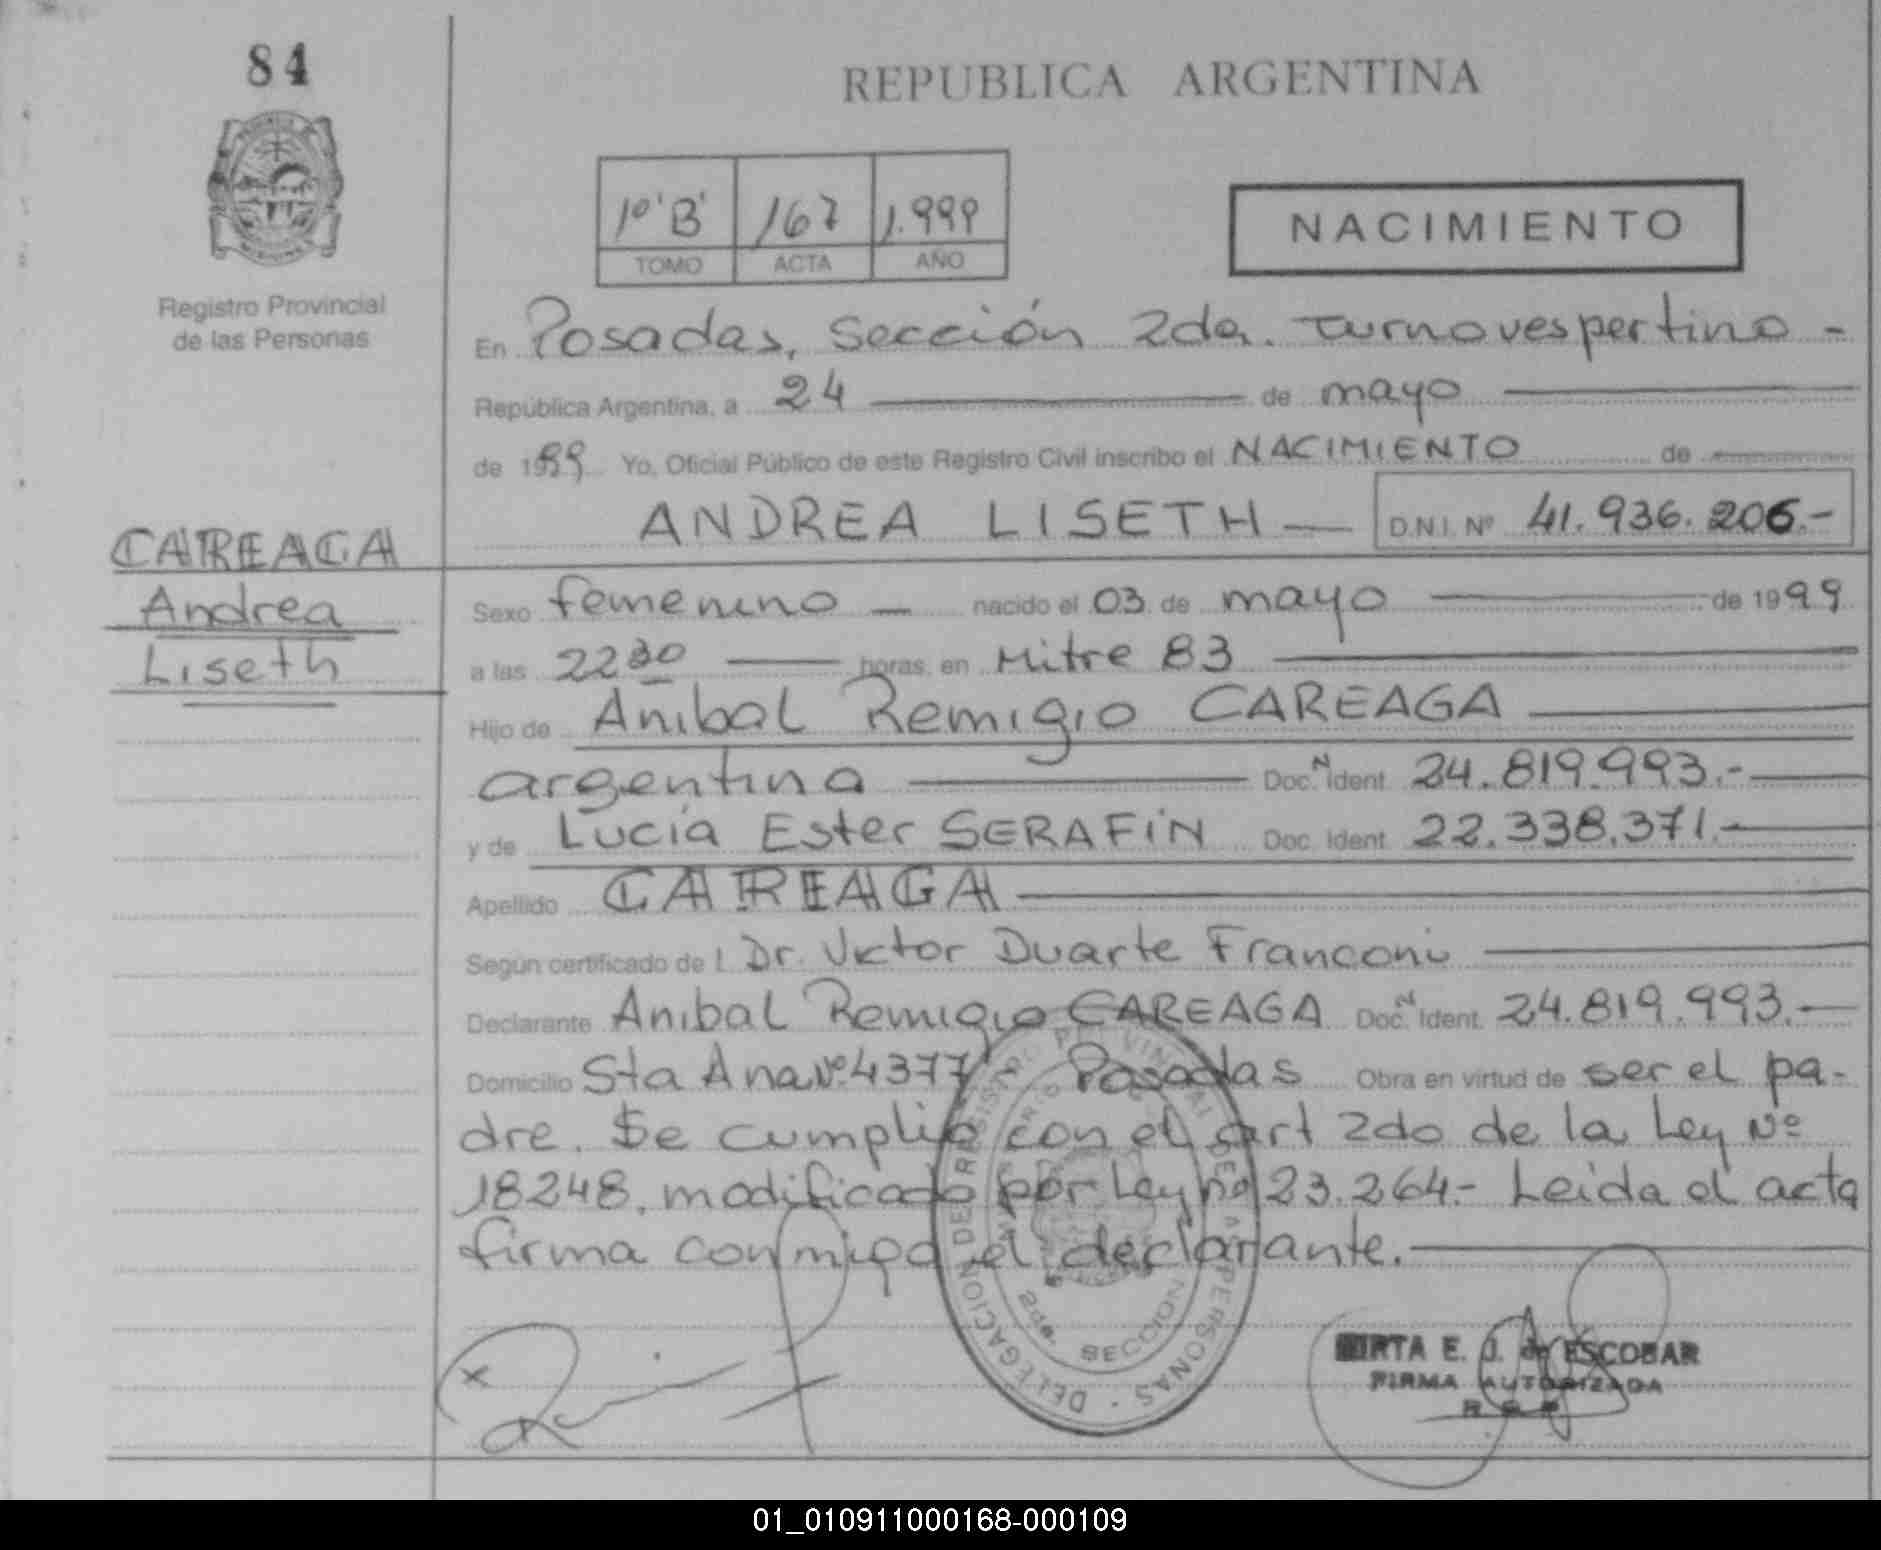 84
REPUBLICA ARGENTINA
1º 'B' 167 1.999
TOMO ACTA AÑO
NACIMIENTO
Registro Provincial
de las Personas
En Posadas, Sección 2da. Turno vespertino -
República Argentina, a 24 de mayo
de 1999 Yo, Oficial Público de este Registro Civil inscribo el NACIMIENTO de
ANDREA LISETH D.N.I. Nº 41.936.206.-
CAREAGA
Andrea
Liseth
Sexo femenino nacido el 03 de mayo de 1999
a las 22 30 horas, en Mitre 83
Hijo de Anibal Remigio CAREAGA
argentino Doc. N Ident. 24.819.993.-
y de Lucía Ester SERAFIN Doc. Ident. 22.338.371.-
Apellido CAREAGA
Según certificado de l Dr. Victor Duarte Franconi
Declarante Anibal Remigio CAREAGA Doc. N Ident. 24.819.993.-
Domicilio Sta Ana Nº 4377 Posadas Obra en virtud de ser el pa-
dre. Se cumplió con el art 2do de la Ley Nº
18248, modificado por Ley no 23.264.- Leida el acta
firma conmigo el declarante.
DELEGACION DEL REGISTRO PROVINCIAL DE LAS PERSONAS
2da. SECCION
MIRTA E. J. de ESCOBAR
FIRMA AUTORIZADA
01_010911000168-000109